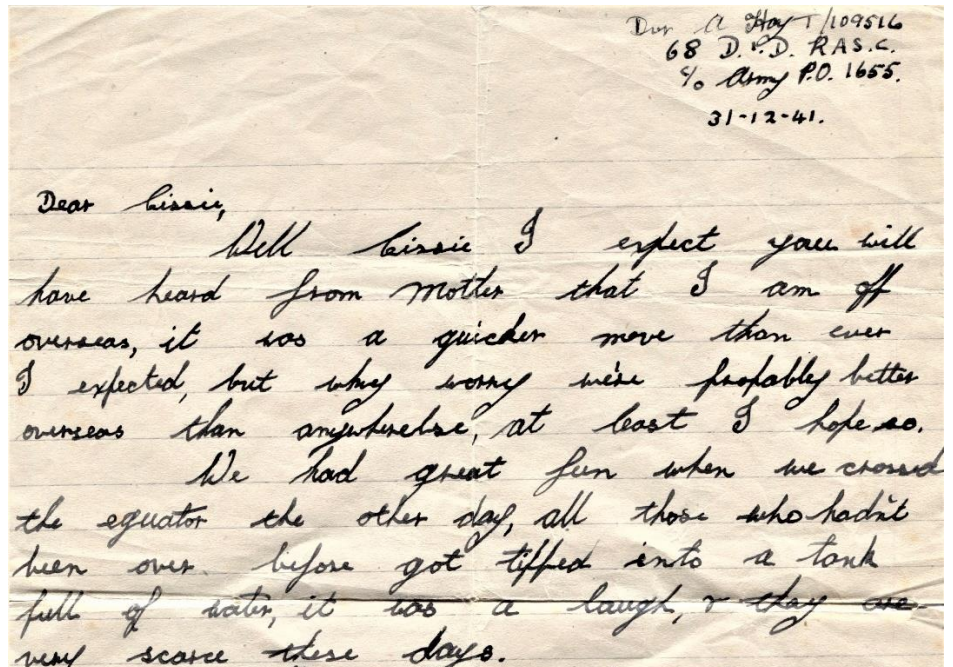 Dvr A Hay T/109516
68 D.I.D. R.A.S.C.
c/o Army P.O. 1655.
31-12-41.
Dear Cissie,
Well Cissie I expect you will
have heard from Mother that I am off
overseas, it was a quicker move than ever
I expected, but why worry we're propably better
overseas than anywherelse, at least I hope so.
We had great fun when we crossed
the equator the other day, all those who hadn't
been over before got tipped into a tank
full of water, it was a laugh, & they are
very scarce these days.